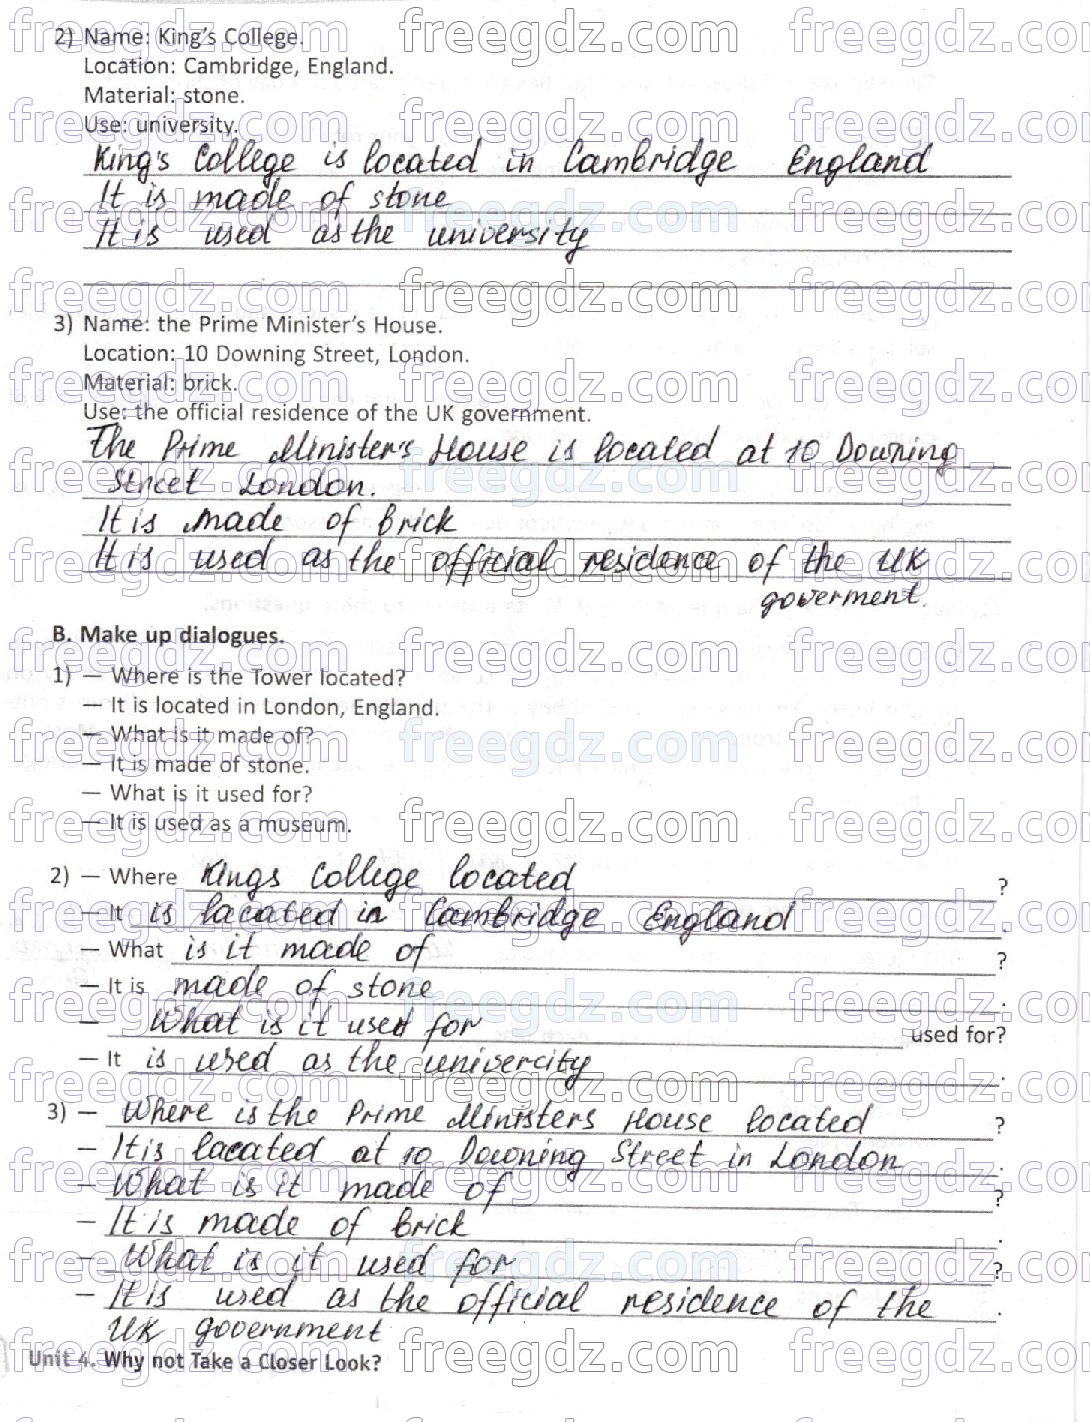 2) Name: King's College.
Location: Cambridge, England.
Material: stone.
Use: university.
King's College is located in Cambridge England
It is made of stone
It is used as the university
3) Name: the Prime Minister's House.
Location: 10 Downing Street, London.
Material: brick.
Use: the official residence of the UK government.
The Prime Minister's House is located at 10 Downing
Street London.
It is made of brick
It is used as the official residence of the UK
goverment.
B. Make up dialogues.
1) — Where is the Tower located?
— It is located in London, England.
— What is it made of?
— It is made of stone.
— What is it used for?
— It is used as a museum.
2) — Where Kings College located ?
— It is lacated in Cambridge England .
— What is it made of ?
— It is made of stone .
— What is it used for used for?
— It is used as the univercity .
3) — Where is the Prime Ministers House located ?
— It is lacated at 10 Downing Street in London .
— What is it made of ?
— It is made of brick .
— What is it used for ?
— It is used as the official residence of the .
UK government
Unit 4. Why not Take a Closer Look?
freegdz.com